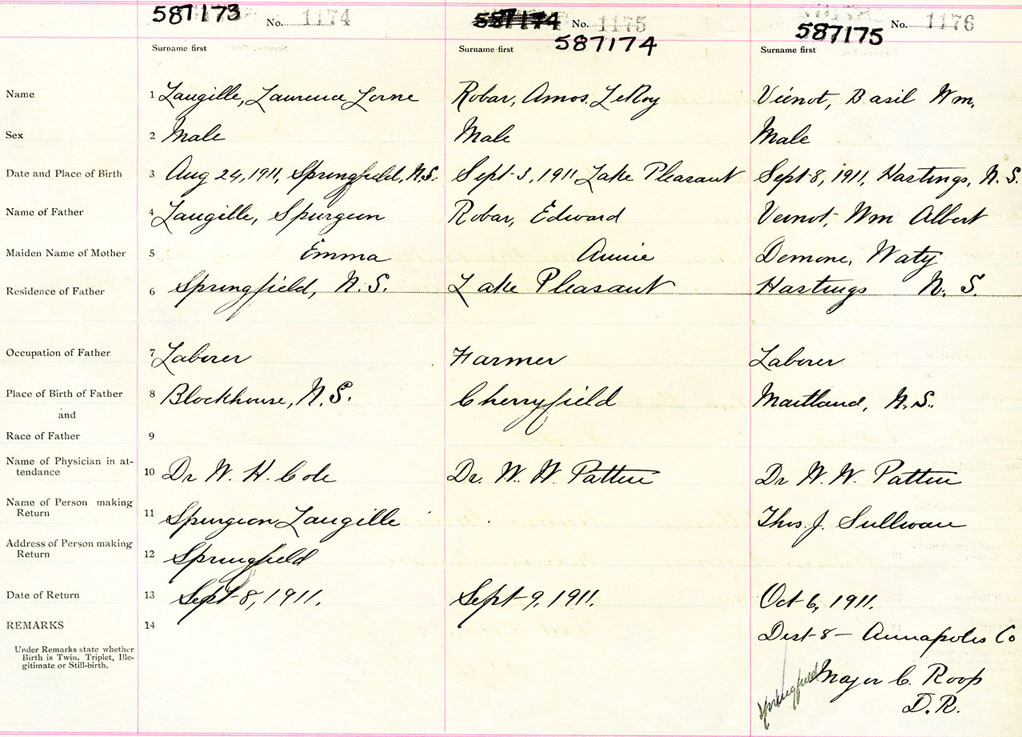 587173 No. 1174 587174 No. 1175 587174 587175 No. 1176
Surname first Surname first Surname first
Name 1 Langille, Laurence Lorne Robar, Amos LeRoy Veinot, Basil Wm.
Sex 2 Male Male Male
Date and Place of Birth 3 Aug 24, 1911, Springfield, N.S. Sept 3, 1911 Lake Pleasant Sept 8, 1911, Hastings, N.S.
Name of Father 4 Langille, Spurgeon Robar, Edward Veinot, Wm Albert
Maiden Name of Mother 5 Emma Annie Demone, Waty
Residence of Father 6 Springfield, N.S. Lake Pleasant Hastings N.S.
Occupation of Father 7 Laborer Farmer Laborer
Place of Birth of Father 8 Blockhouse, N.S. Cherryfield Maitland, N.S.
and
Race of Father 9
Name of Physician in at-
tendance 10 Dr W. H. Cole Dr. W. W. Patten Dr W. W. Patten
Name of Person making
Return 11 Spurgeon Langille Thos. J. Sullivan
Address of Person making
Return 12 Springfield
Date of Return 13 Sept 8, 1911. Sept 9, 1911. Oct 6, 1911.
REMARKS 14 Dist 8 - Annapolis Co
Under Remarks state whether
Birth is Twin, Triplet, Ille-
gitimate or Still-birth.
Springfield Major C. Roop
D.R.